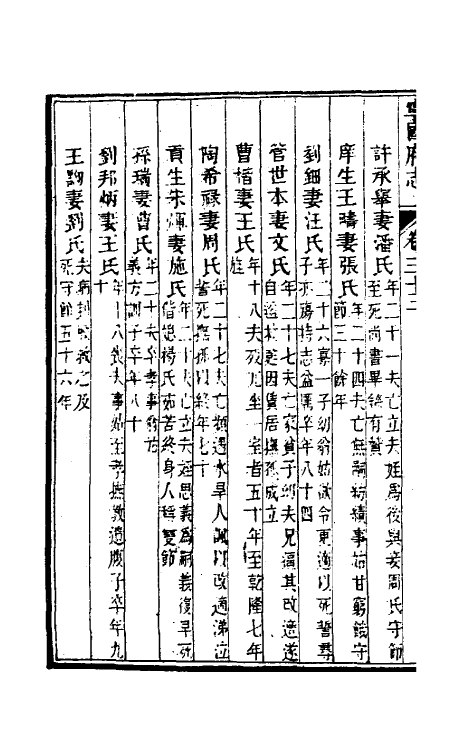 寧國府志 卷三十二
許承舉妻潘氏 年二十一夫亡立夫姪爲後與妾周氏守節至死尚書畢鏘有贊
庠生王璹妻張氏 年二十四夫亡無嗣紡績事姑甘窮餓守節三十餘年
劉鈿妻汪氏 年二十六寡一子幼翁姑欲令更適以死誓尋子亦殤持志益厲卒年八十四
管世本妻文氏 年二十七夫亡家貧子幼夫兄逼其改適遂自
居撫孤成立
曹楷妻王氏 年十八夫歿
坐一室者五十年至乾隆七年
陶希祿妻周氏 年二十七夫亡
遇水旱人諷以改適涕泣誓死撫孫以終年七十
貢生宋
妻施氏 年二十夫亡夫姪思義爲嗣義復早死偕媳楊氏茹苦終身人稱雙節
孫瑞妻曹氏 年二十夫卒孝事翁姑義方訓子卒年八十
劉邦炳妻王氏 年十八喪夫事姑至孝撫教遺腹子卒年九十
王
妻劉氏 夫病刲股救之及死守節五十六年